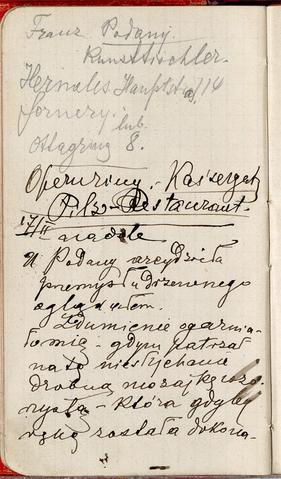 Franz Podany.
Kunsttischler.
Hernals Hauptst. 114
lub.
Ottagring 8.
Opernring.-
Pilz-Restaurant.
17/II na dole
U Podany arcydzieła
przemysłu drzewnego
oglądałem.
Zdumienie ogarnia-
ło mię - gdym patrzał
na tę niesłychanie
drobną mozajkę
- która gdyby
ręką została dokona-